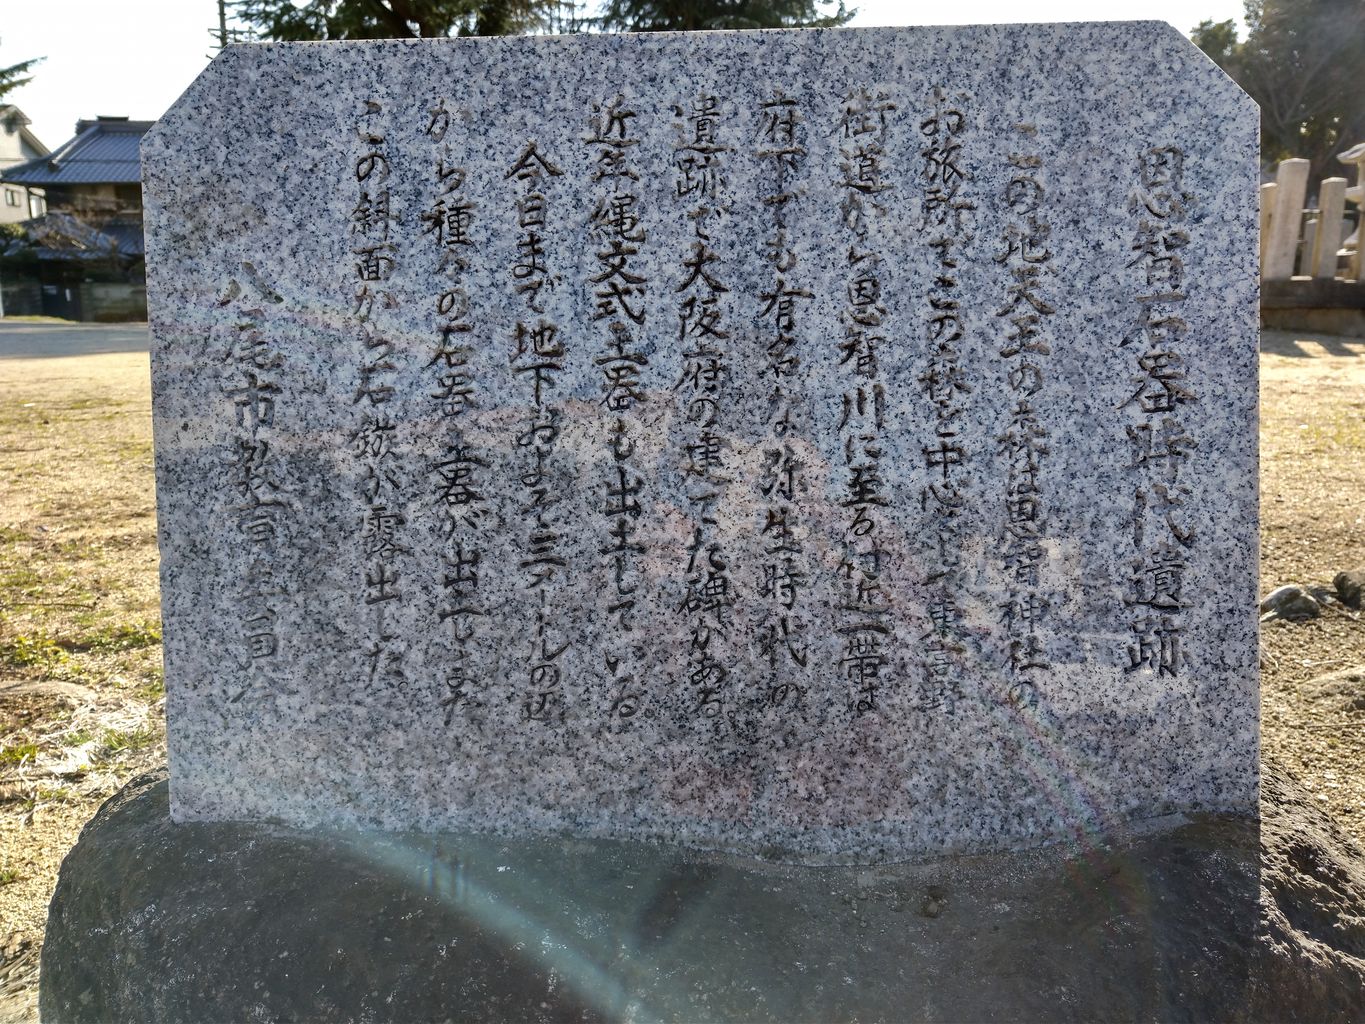 恩智石器時代遺跡
この地天王の森は恩智神社の
お旅所でこの森を中心として東高野
街道から恩智川に至る付近一帯は
府下でも有名な弥生時代の
遺跡で大阪府の建てた碑がある。
近年縄文式土器も出土している
今日まで地下およそ三メートルの辺
から種々の石器土器が出てしまた
この斜面から石鏃が露出した。
八尾市教育委員会